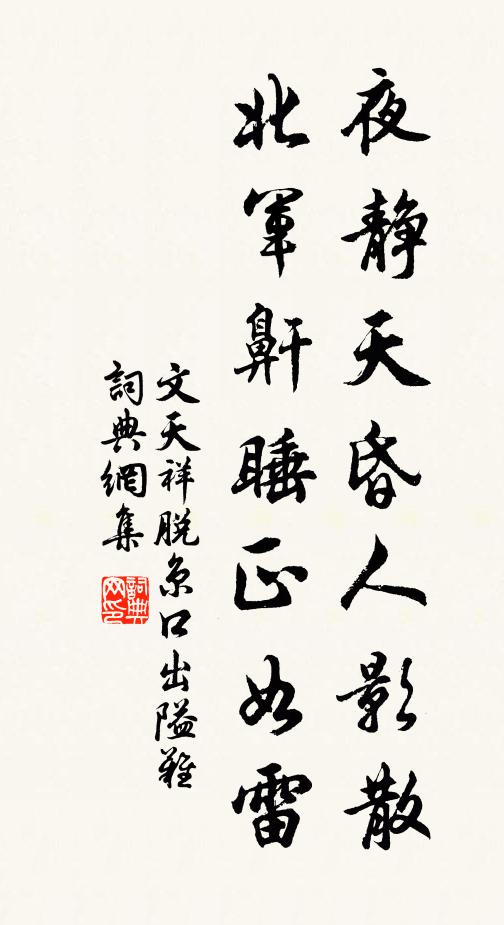 夜静天昏人影散
北軍鼾睡正如雷
文天祥脱京口出隘難
詞典網集
詞典網印